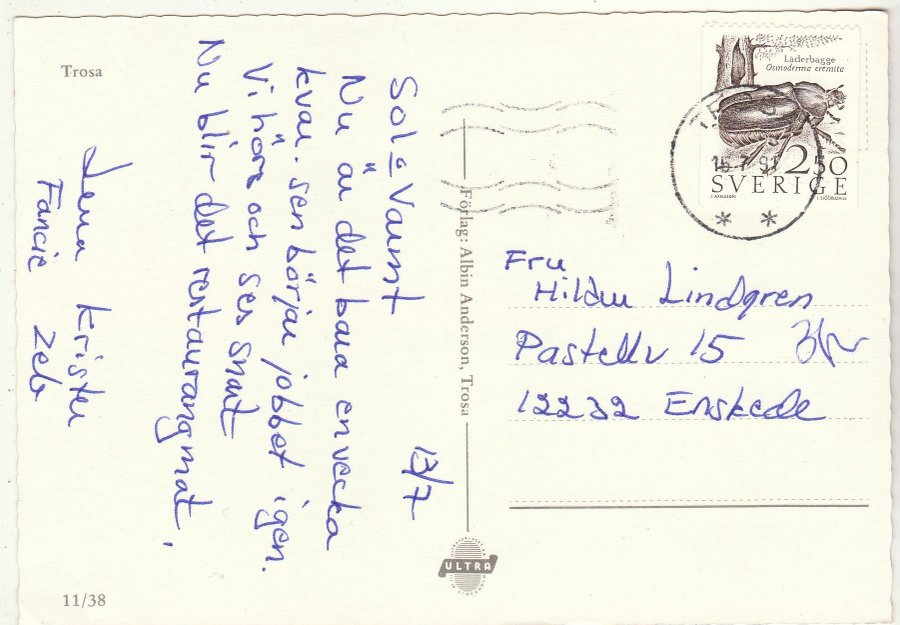 Trosa
13/7
Sol = Varmt
Nu är det bara en vecka
kvar. sen börjar jobbet igen.
Vi hörs och ses snart
Nu blir det restaurangmat.
Lena Krister
Fancie Zeb
11/38
Förlag: Albin Anderson, Trosa
ULTRA
Läderbagge
Osmoderma eremita
2.50
SVERIGE
15 7 91
Fru
Hilda Lindgren
Pastellv 15
12232 Enskede